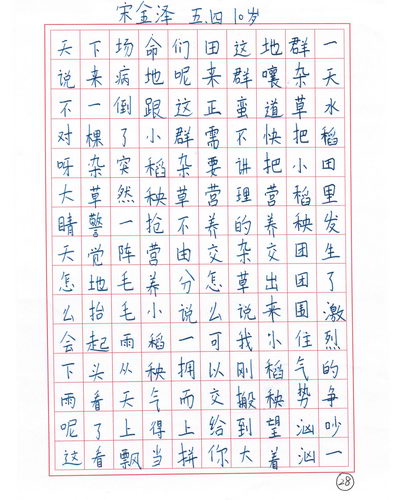 宋金泽 五.四 10岁
一天水稻田里发生了激烈的争吵一
群杂草把小稻秧团团围住气势汹汹
地嚷道快把营养交出来小稻秧望着
这群蛮不讲理的杂草说我刚搬到大
田来正需要营养怎么可以交给你
们呢这群杂草不由分说一拥而上拼
命地跟小稻秧抢营养小稻秧气得当
场病倒了突然一阵毛毛雨从天上飘
下来一棵杂草警觉地抬起头看了看
天说不对呀大睛天怎么会下雨呢这
28